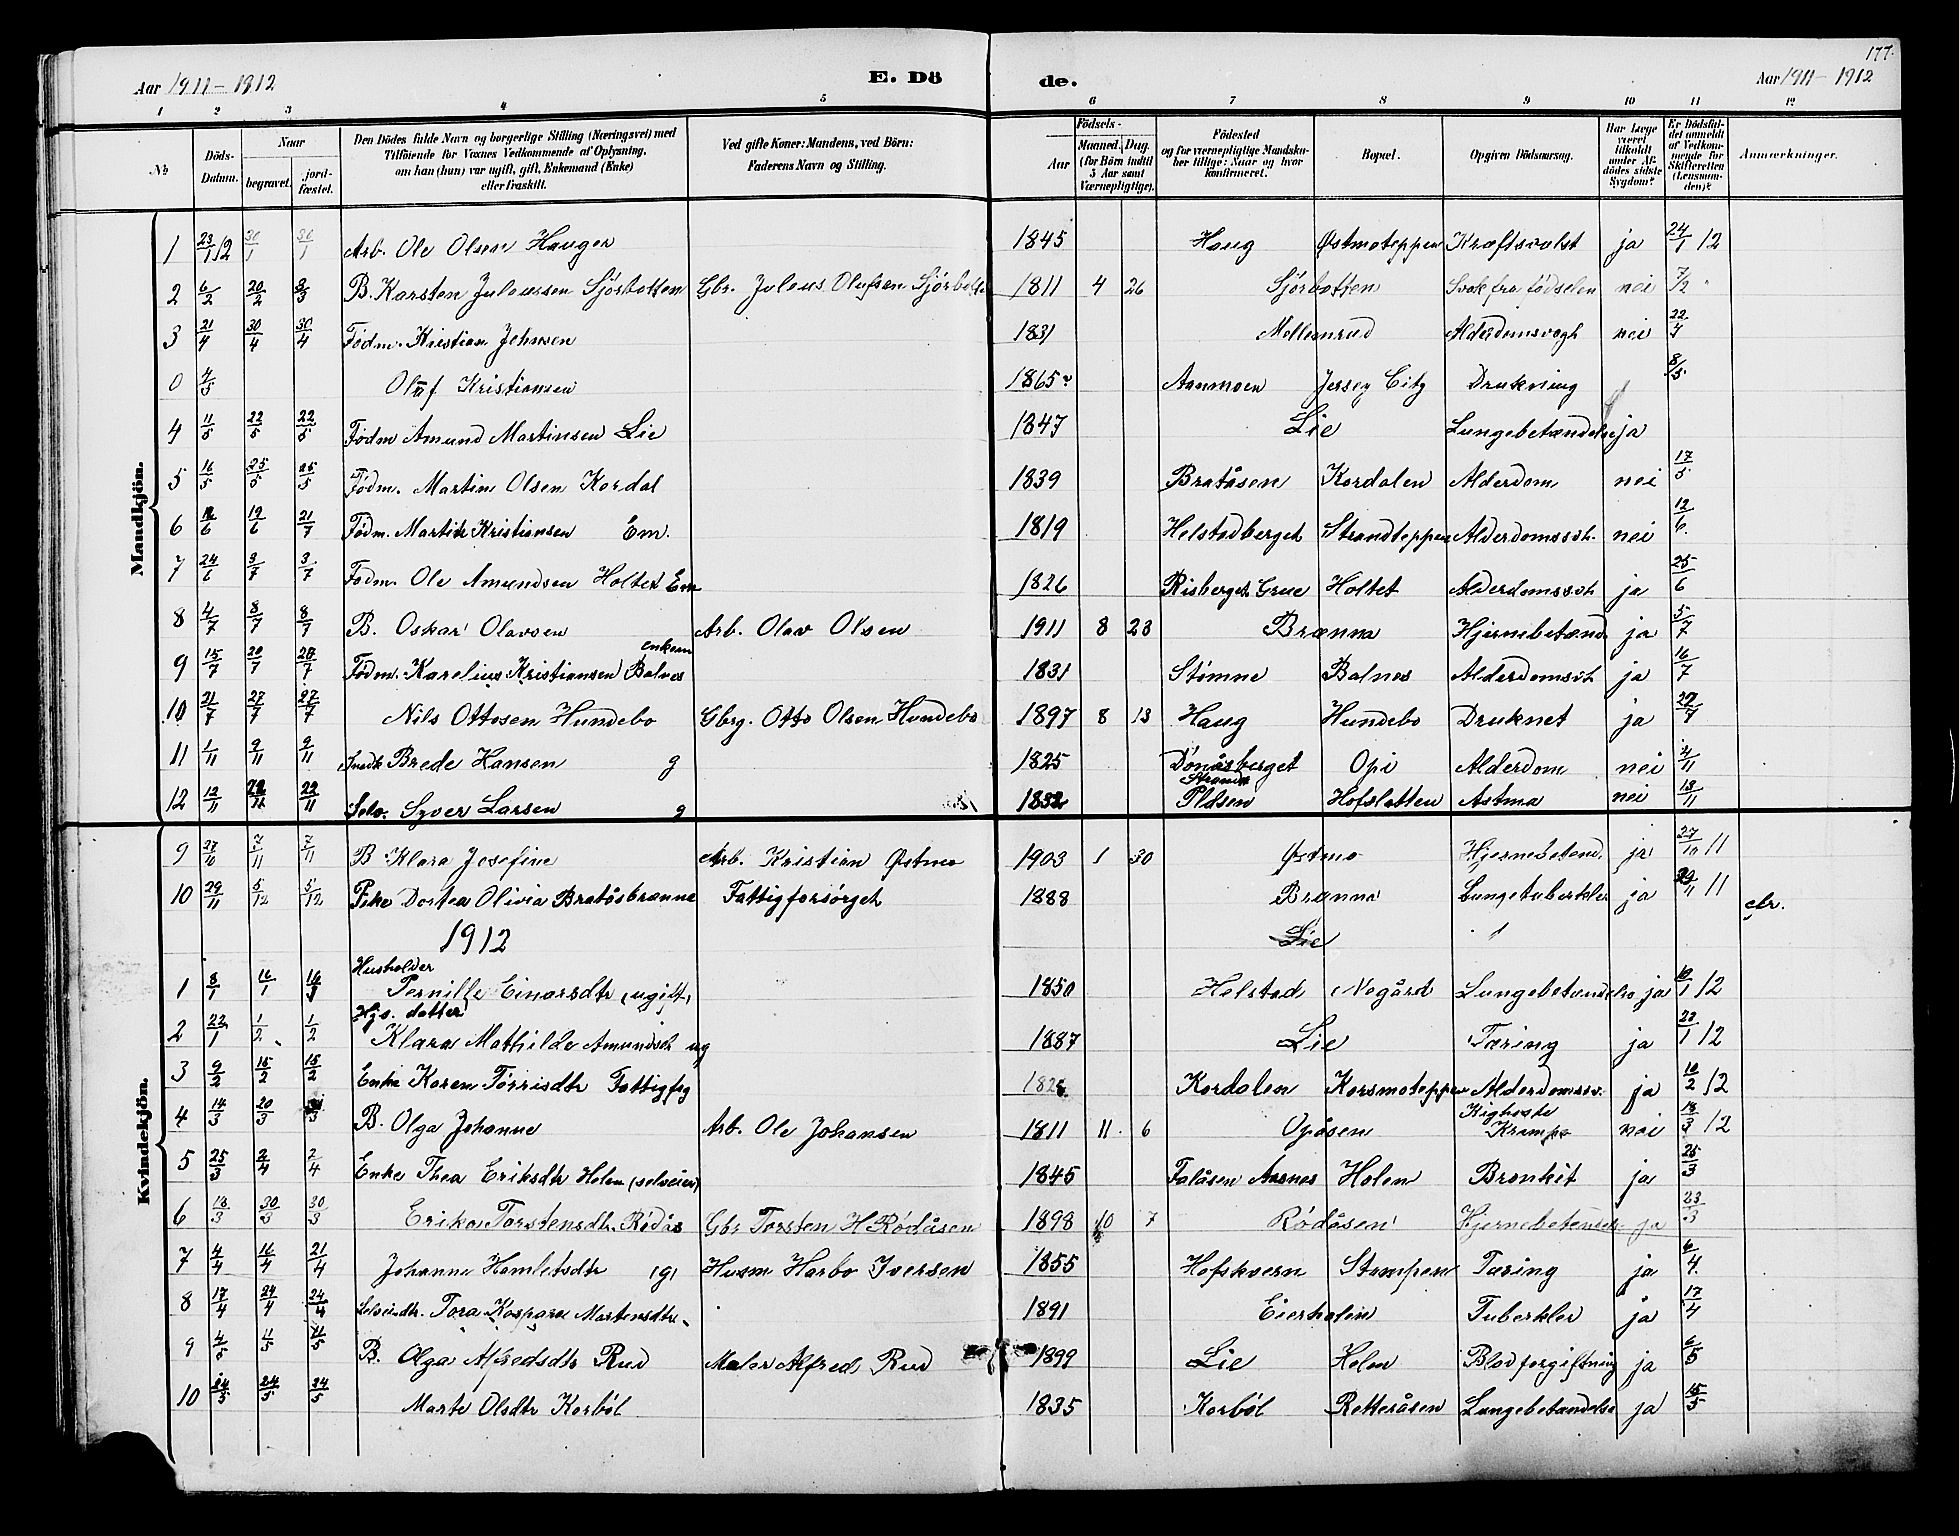 177.
Aar 1911 - 1912 E. Dö de. Aar 1911 - 1912
1 2 3 4 5 6 7 8 9 10 11 12
№ Döds-Datum. Naar begravet. jordfæstet. Den Dödes fulde Navn og borgerlige Stilling (Næringsvei) med Tilföiende for Voxnes Vedkommende af Oplysning, om han (hun) var ugift, gift, Enkemand (Enke) eller fraskilt. Ved gifte Koner: Mandens, ved Börn: Faderens Navn og Stilling. Födsels- Aar Maaned. Dag. (for Börn indtil 5 Aar samt Værnepligtige). Födested og for værnepligtige Mandskaber tillige: Naar og hvor konfirmeret. Bopæl. Opgiven Dödsaarsag. Har Læge været tilkaldt under Afdödes sidste Sygdom? Er Dödsfaldet anmeldt af Vedkommende for Skifteretten (Lensmanden)? Anmærkninger.
Mandkjön.
1 23/1 12 30/1 30/1 Arb. Ole Olsen Haugen 1845 Haug Østmoteppen Kræftsvulst ja 24/1 12
2 6/2 20/2 3/3 B. Karsten Juliussen Sjørbotten Gbr. Julius Olufsen Sjørbotten 1811 4 26 Sjørbotten Svak fra fødselen nei 7/2 "
3 21/4 30/4 30/4 Fødm. Kristian Johnsen 1831 Mellemrud Alderdomsvagh nei 22/4
0 4/5 Oluf Kristiansen 1865 Aanmoen Jersey City Drukning 8/5
4 11/5 22/5 22/5 Fødm Amund Martinsen Lie 1847 Lie Lungebetændelse ja
5 16/5 25/5 25/5 Fødm. Martin Olsen Kordal 1839 Bratåsen Kordalen Alderdom nei 17/5
6 12/6 19/6 21/7 Fødm. Martin Kristiansen Em. 1819 Helstadberget Strandteppen Alderdomssvh. nei 12/6.
7 24/6 3/7 3/7 Fødm. Ole Amundsen Holtet Em 1826 Risberget Grue Holtet Alderdomssvh ja 25/6
8 4/7 8/7 8/7 B. Oskar Olavsen Arb. Olav Olsen 1911 8 23 Brænna Hjernebetænd. ja 5/7
9 15/7 20/7 20/7 Fødm. Karelius Kristiansen Balnes enkem 1831 Stømne Balnes Alderdomsvh ja 16/7
10 21/7 27/7 27/7 Nils Ottosen Hundebo Gbrg. Otto Olsen Hundebo 1897 8 13 Haug Hundebo Druknet ja 27/7
11 1/11 9/11 9/11 Snedk Brede Hansen g 1825 Dönåsberget Opi Alderdom nei 2/11
12 12/11 22/11 22/11 Selv. Syver Larsen g 1832 Strands Plåsen Hofslatten Astma nei 13/11
Kvindekjön.
9 27/10 7/11 7/11 B Klara Josefine Arb. Kristian Østmo 1903 1 30 Østmo Hjernebetænd. ja 27/10 11
10 29/11 5/12 5/12 Pike Dortea Olivia Bratåsbrænna Fattigforsørget 1888 Brænna Lungetuberkler ja 29/11 11 elr.
1912 Lie
1 8/1 16/1 16/1 Husholder Pernille Einarsdtr (ugift) 1850 Helstad Nogård Lungebetændelse ja 10/1 12
2 22/1 1/2 1/2 Hjs. datter Klara Mathilde Amundsdtr ug 1887 Lie Tæring ja 23/1 12
3 9/2 15/2 15/2 Enke Karen Tørrisdtr Fattigfsg 1826 Kordalen Korsmoteppen Alderdomssv. ja 10/2 12
4 14/3 20/3 B. Olga Johanne Arb. Ole Johansen 1811 11 6 Opåsen Kighoste Krampe nei 18/3 12
5 25/3 2/4 2/4 Enke Thea Eriksdtr Holen (selveier) 1845 Falåsen Aasnes Holen Bronkit ja 25/3
6 18/3 30/3 30/3 Erika Torstensdtr. Rødås Gbr Torsten H Rödåsen 1898 10 7 Rødåsen Hjernebetændelse ja 23/3
7 4/4 16/4 21/4 Johanne Hamletsdtr (g) Husm Harbo Iversen 1855 Hofskvern Stampen Tæring ja 6/4.
8 17/4 24/4 24/4 Selveiedtr. Tora Kaspara Martensdtr. 1891 Eierholen Tuberkler ja 17/4
9 4/5 11/5 11/5 B. Olga Alfredsdtr Rud Maler Alfred Rud 1899 Lie Holen Blodforgiftning ja 6/5
10 14/5 24/5 24/5 Marte Olsdtr Korbøl 1835 Korböl Retteråsen Lungebetændelse ja 15/5